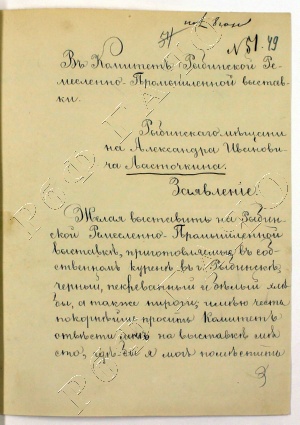 № 51-49
Въ Комитетъ Рыбинской Ре-
месленно-Промышленной выстав-
ки.
Рыбинскаго мѣщани-
на Александра Иванови-
ча Ласточкина.
Заявленіе.
Желая выставить на Рыбин-
ской Ремесленно-Промышленной
выставкѣ, приготовляемые въ соб-
ственномъ куренѣ въ г. Рыбинскѣ,
черный, пеклеванный и бѣлый хлѣ-
бы, а также пироги, имѣю честь
покорнѣйше просить Комитетъ
отвести мнѣ на выставкѣ мѣ-
сто, гдѣ бы я могъ помѣстить